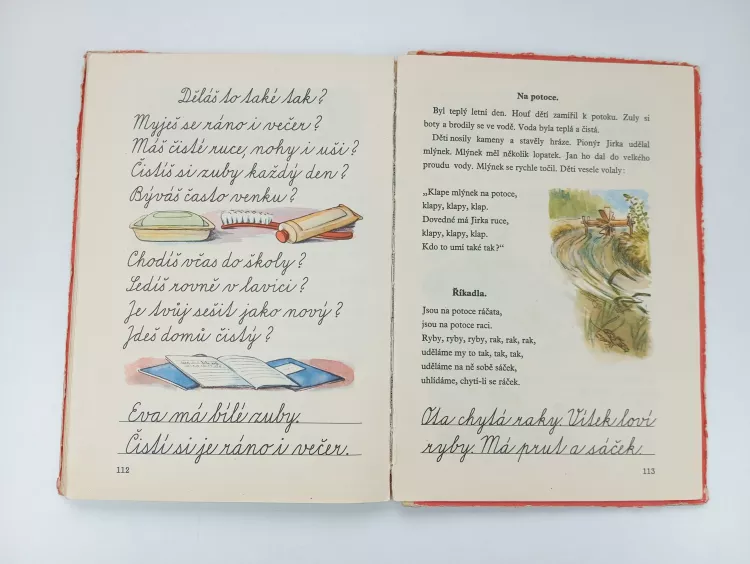 Děláš to také tak?
Myješ se ráno i večer?
Máš čisté ruce, nohy i uši?
Čistíš si zuby každý den?
Býváš často venku?
Chodíš včas do školy?
Sedíš rovně v lavici?
Je tvůj sešit jako nový?
Jdeš domů čistý?
Eva má bílé zuby.
Čistí si je ráno i večer.
112
Na potoce.
Byl teplý letní den. Houf dětí zamířil k potoku. Zuly si
boty a brodily se ve vodě. Voda byla teplá a čistá.
Děti nosily kameny a stavěly hráze. Pionýr Jirka udělal
mlýnek. Mlýnek měl několik lopatek. Jan ho dal do velkého
proudu vody. Mlýnek se rychle točil. Děti vesele volaly:
„Klape mlýnek na potoce,
klapy, klapy, klap.
Dovedné má Jirka ruce,
klapy, klapy, klap.
Kdo to umí také tak?“
Říkadla.
Jsou na potoce ráčata,
jsou na potoce raci.
Ryby, ryby, ryby, rak, rak, rak,
uděláme my to tak, tak, tak,
uděláme na ně sobě sáček,
uhlídáme, chytí-li se ráček.
Ota chytá raky. Vítek loví
ryby. Má prut a sáček.
113